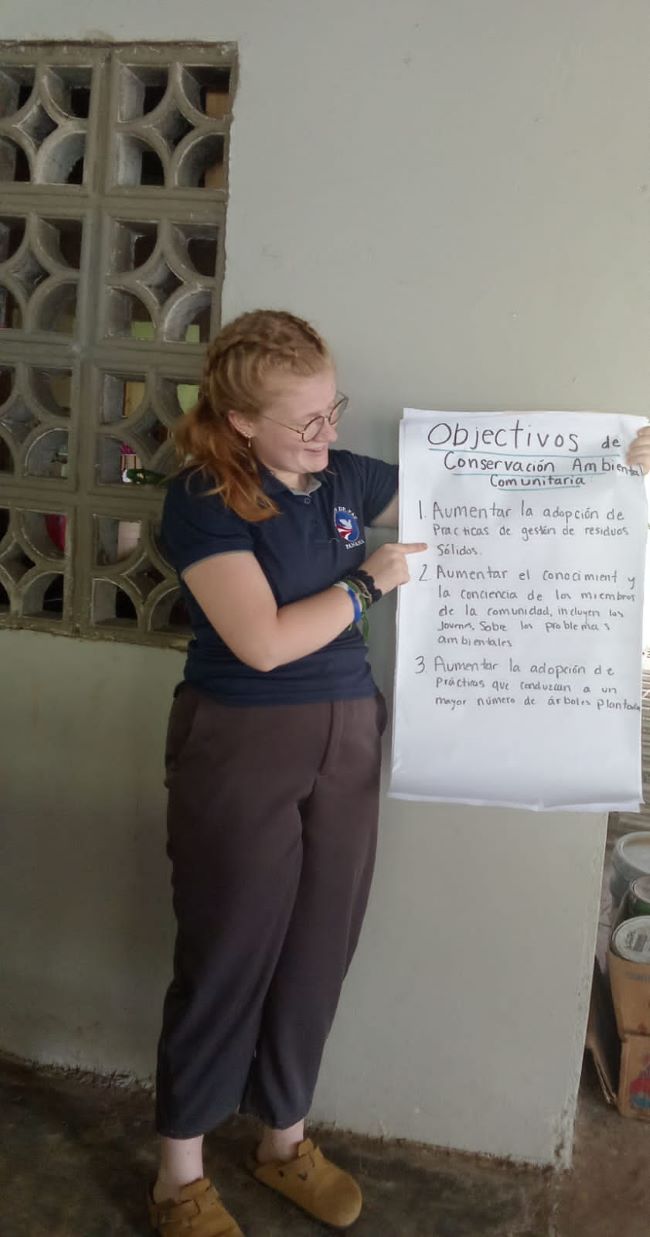 Objectivos de
Conservación Ambiental
Comunitaria
1. Aumentar la adopción de
Prácticas de gestión de residuos
Sólidos.
2. Aumentar el conocimient y
la conciencia de los miembros
de la comunidad, incluyen los
Jovens, Sobe los problemas
ambientales
3. Aumentar la adopción de
prácticas que conduzcan a un
mayor número de árboles plantados
PANAMÁ